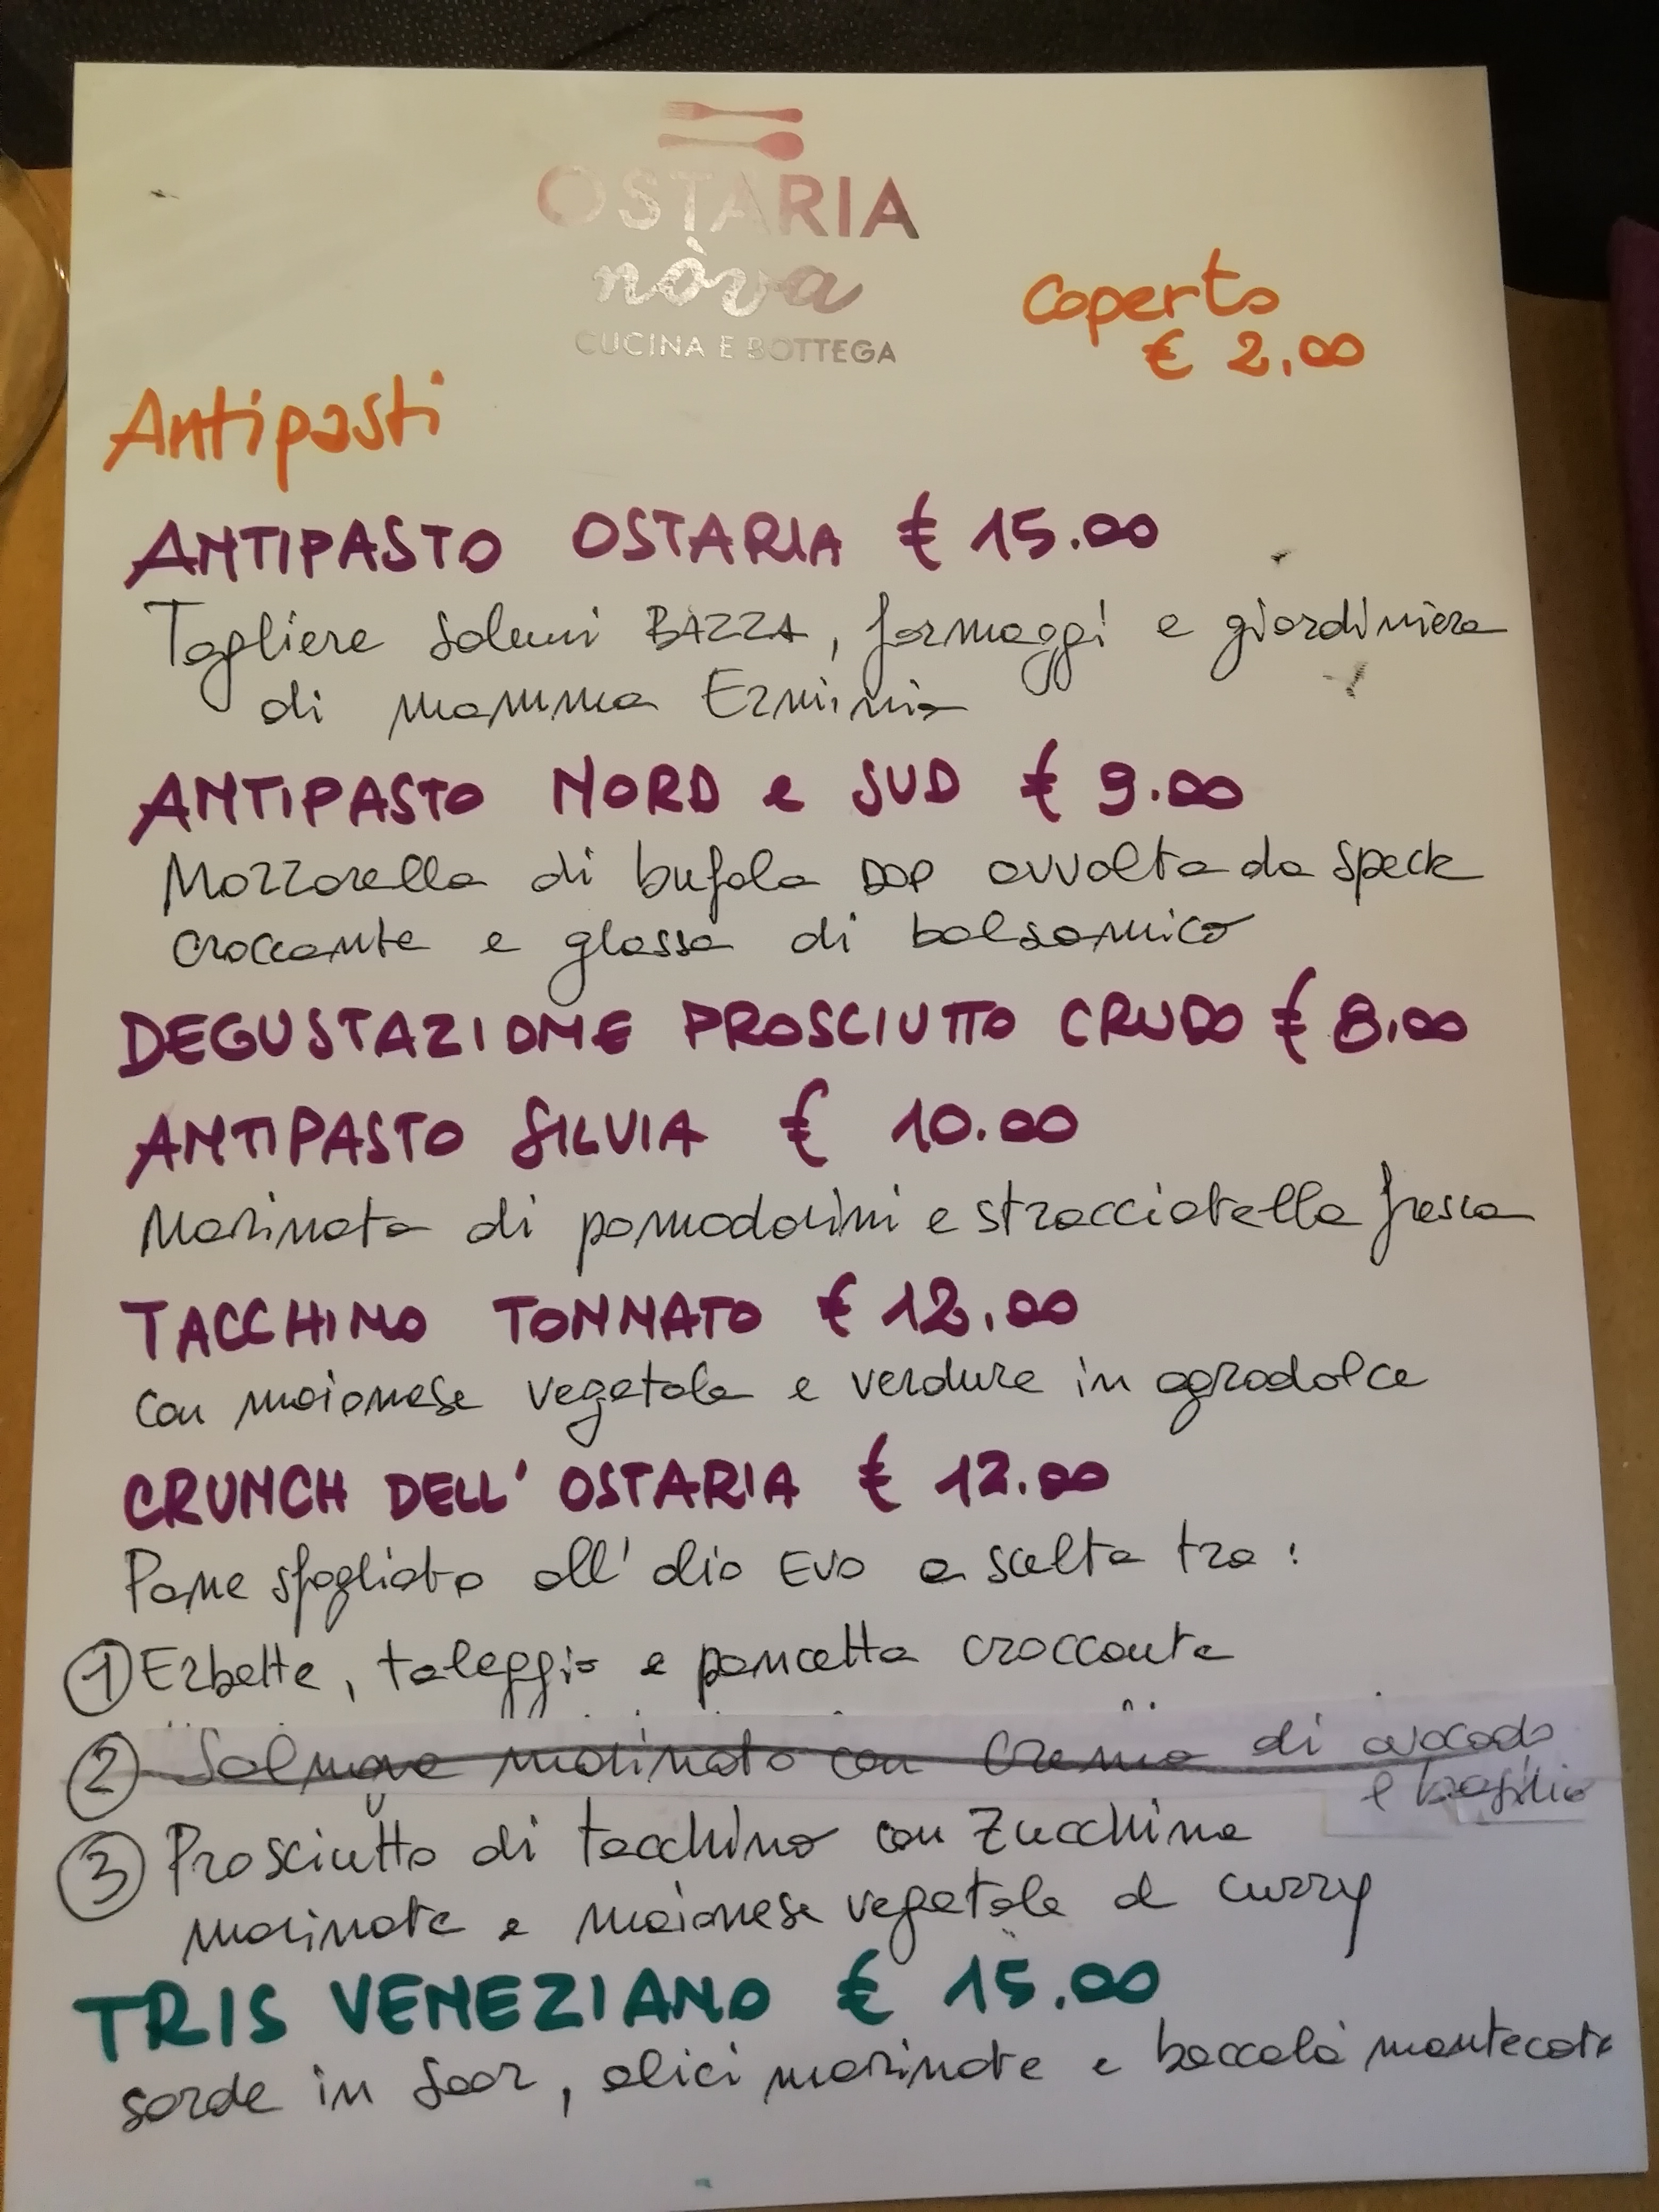 OSTARIA
nòva
CUCINA E BOTTEGA
Coperto
€ 2,00
Antipasti
ANTIPASTO OSTARIA € 15.00
Tagliere salumi BAZZA, formaggi e giardiniera
di mamma Erminia
ANTIPASTO NORD e SUD € 9.00
Mozzarella di bufala DOP avvolta da speck
croccante e glassa di balsamico
DEGUSTAZIONE PROSCIUTTO CRUDO € 8,00
ANTIPASTO SILVIA € 10.00
Marinata di pomodorini e stracciatella fresca
TACCHINO TONNATO € 12,00
con maionese vegetale e verdure in agrodolce
CRUNCH DELL' OSTARIA € 12.00
Pane sfogliato all' olio EVO a scelta tra:
1 Erbette, taleggio e pancetta croccante
2 Salmone marinato con crema di avocado
e basilio
3 Prosciutto di tacchino con zucchine
marinate e maionese vegetale al curry
TRIS VENEZIANO € 15.00
sarde in saor, alici marinate e baccalà mantecato